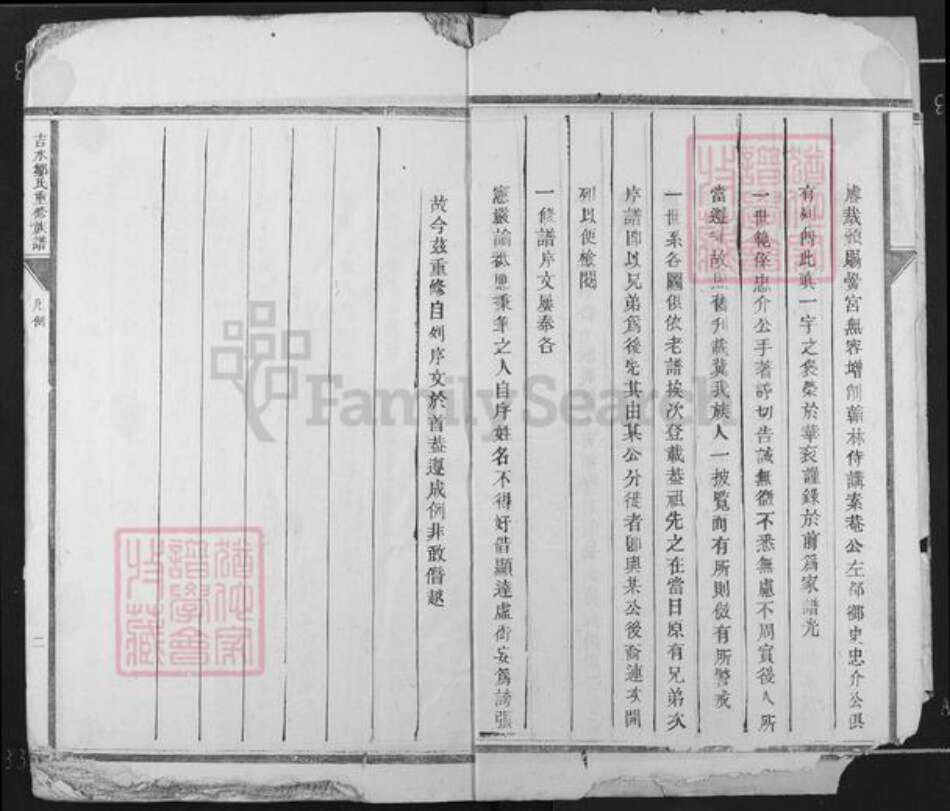 宸裁預賜黌宮無容增削翰林侍講素菴公左都御史忠介公俱
有列傳此眞一字之褒榮於華袞謹錄於前爲家譜光
一世範係忠介公手著諄切告誡無微不悉無慮不周實後人所
當遵 故 舊刊載冀我族人一披覽而有所則傚有所警戒
一世系各圖俱依老譜挨次登載蓋祖先之在當日原有兄弟次
序譜即以兄弟爲後先其由某公分徙者即與某公後裔連次開
列以便檢閱
一修譜序文屢奉各
憲嚴諭祇應秉筆之人自序姓名不得好借顯達虛銜妄爲誇張
故今茲重修自列序文於首蓋遵成例非敢僭越
吉水鄒氏重修族譜
凡例
二
猶他家
譜學會
收藏
猶他家
譜學會
收藏
FamilySearch